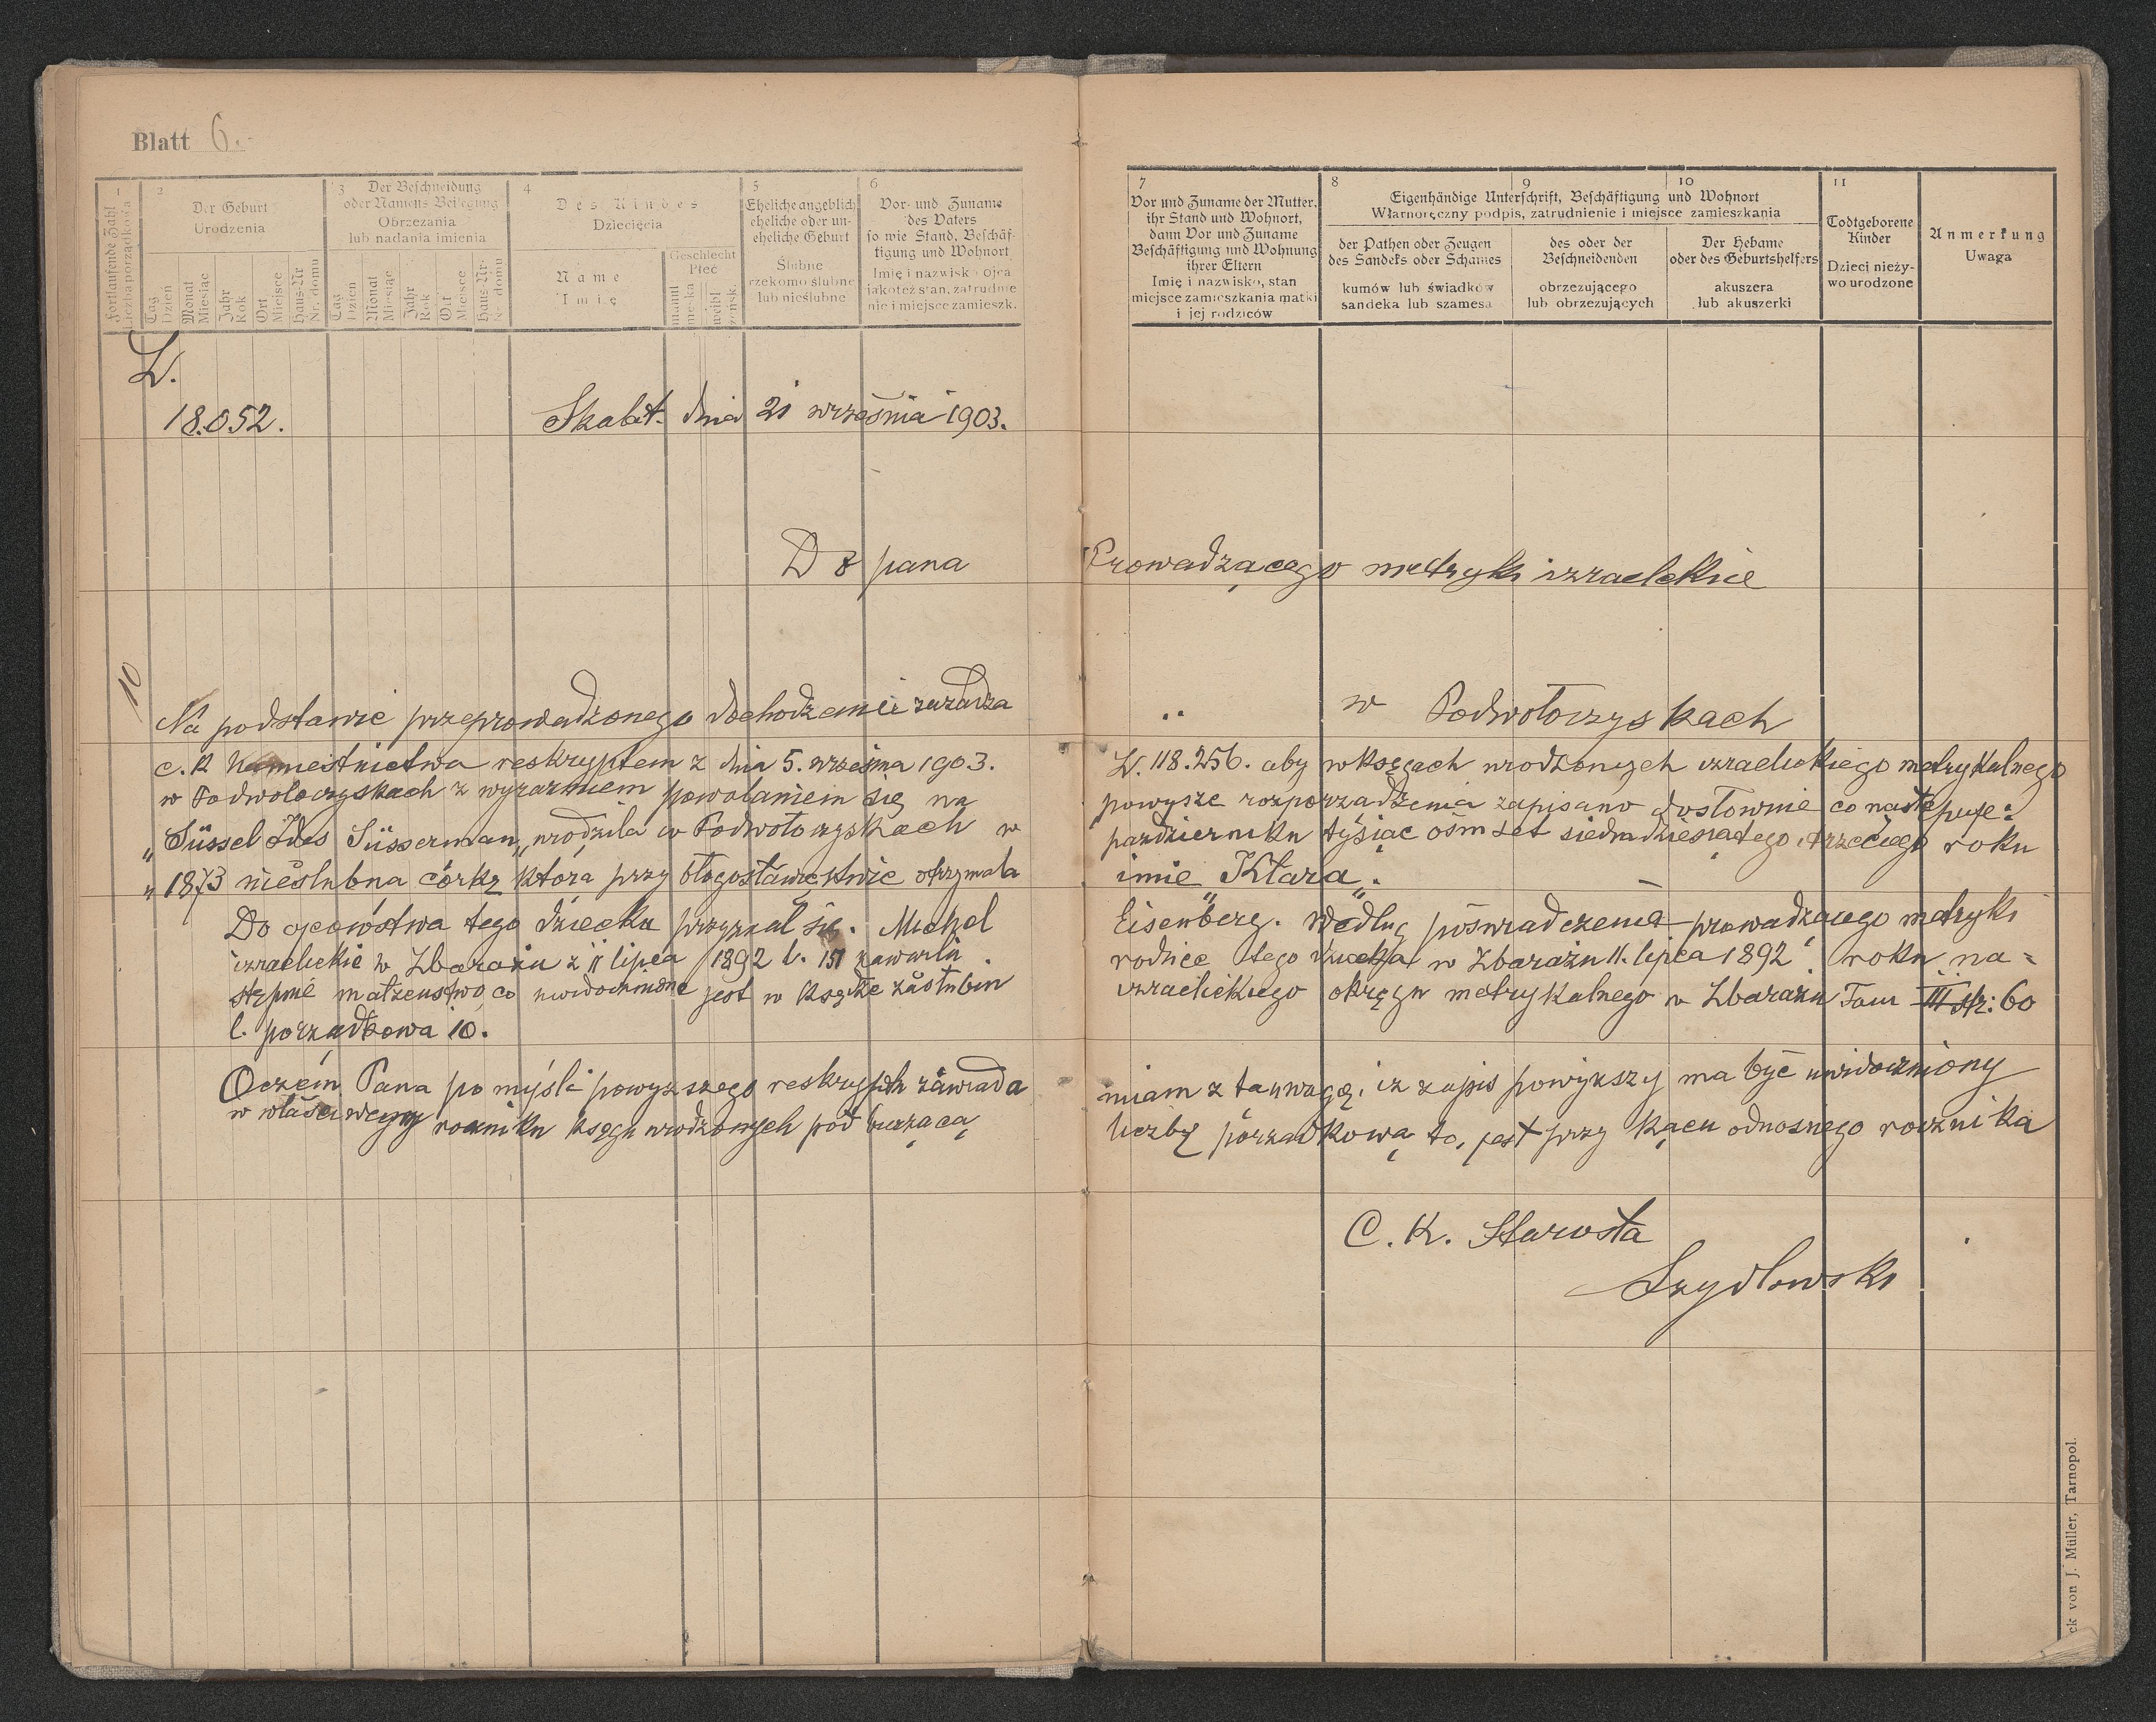 Blatt 6.
1
Fortlaufende Zahl
Liczba porządkowa
2
Der Geburt
Urodzenia
Tag
Dzień
Monat
Miesiąc
Jahr
Rok
Ort
Miejsce
Haus-Nr
Nr. domu
3
Der Beschneidung
oder Namens-Beilegung
Obrzezania
lub nadania imienia
Tag
Dzień
Monat
Miesiąc
Jahr
Rok
Ort
Miejsce
Haus-Nr.
Nr. domu
4
Des Kindes
Dziecięcia
Name
Imię
Geschlecht
Płeć
männl
męska
weibl
żeńsk.
5
Eheliche angeblich
eheliche oder un-
eheliche Geburt
Ślubne
rzekomo ślubne
lub nieślubne
6
Vor- und Zuname
des Vaters
so wie Stand, Beschäf-
tigung und Wohnort
Imię i nazwisko ojca
jakoteż stan, zatrudnie
nie i miejsce zamieszk.
7
Vor und Zuname der Mutter,
ihr Stand und Wohnort,
dann Vor und Zuname
Beschäftigung und Wohnung
ihrer Eltern
Imię i nazwisko, stan
miejsce zamieszkania matki
i jej rodziców
8
9
10
Eigenhändige Unterschrift, Beschäftigung und Wohnort
Własnoręczny podpis, zatrudnienie i miejsce zamieszkania
der Pathen oder Zeugen
des Sandeks oder Schames
kumów lub świadków
sandeka lub szamesa
des oder der
Beschneidenden
obrzezującego
lub obrzezujących
Der Hebame
oder des Geburtshelfers
akuszera
lub akuszerki
11
Todtgeborene
Kinder
Dzieci nieży-
wo urodzone
Anmerkung
Uwaga
L.
18.052. Skałat. dnia 21 września 1903.
Do pana Prowadzącego metryki izraelickie
w Podwołoczyskach
10
Na podstawie przeprowadzonego dochodzenia zarządza
c. k Namiestnictwa reskryptem z dnia 5. września 1903. L. 118.256. aby w księgach urodzonych izraelickiego metrykalnego
w Podwołoczyskach z wyraźniem powołaniem się na powyższe rozporządzenia zapisano dosłownie co następuje:
„Süssel Ides Süsserman„ urodziła w Podwołoczyskach w październiku tysiąc ośmset siedmdziesiątego trzeciego roku
„1873 nieślubną córkę która przy błogosławieństwie otrzymała imię „Klara„.
Do ojcowstwa tego dziecka przyznał się. Michel Eisenberg. Według poświadczenia prowadzącego metryki
izraelickie w Zbarażu z 11 lipca 1892 l. 151 zawarli rodzice tego dziecka w Zbarażu 11. lipca 1892 roku na-
stępnie małżeństwo, co uwidocznione jest w księdze zaślubin izraelickiego okręgu metrykalnego w Zbarażu Tom III str: 60
l. porządkowa 10.
O czem Pana po myśli powyższego reskryptu zawiada miam z tą uwagą, iż zapis powyższy ma być uwidoczniony
w właściwym roczniku księgi urodzonych pod bieżącą liczbą porządkową to, jest przy końcu odnośnego rocznika
C. K. Starosta
Szydłowski
ck von J. Müller, Tarnopol.